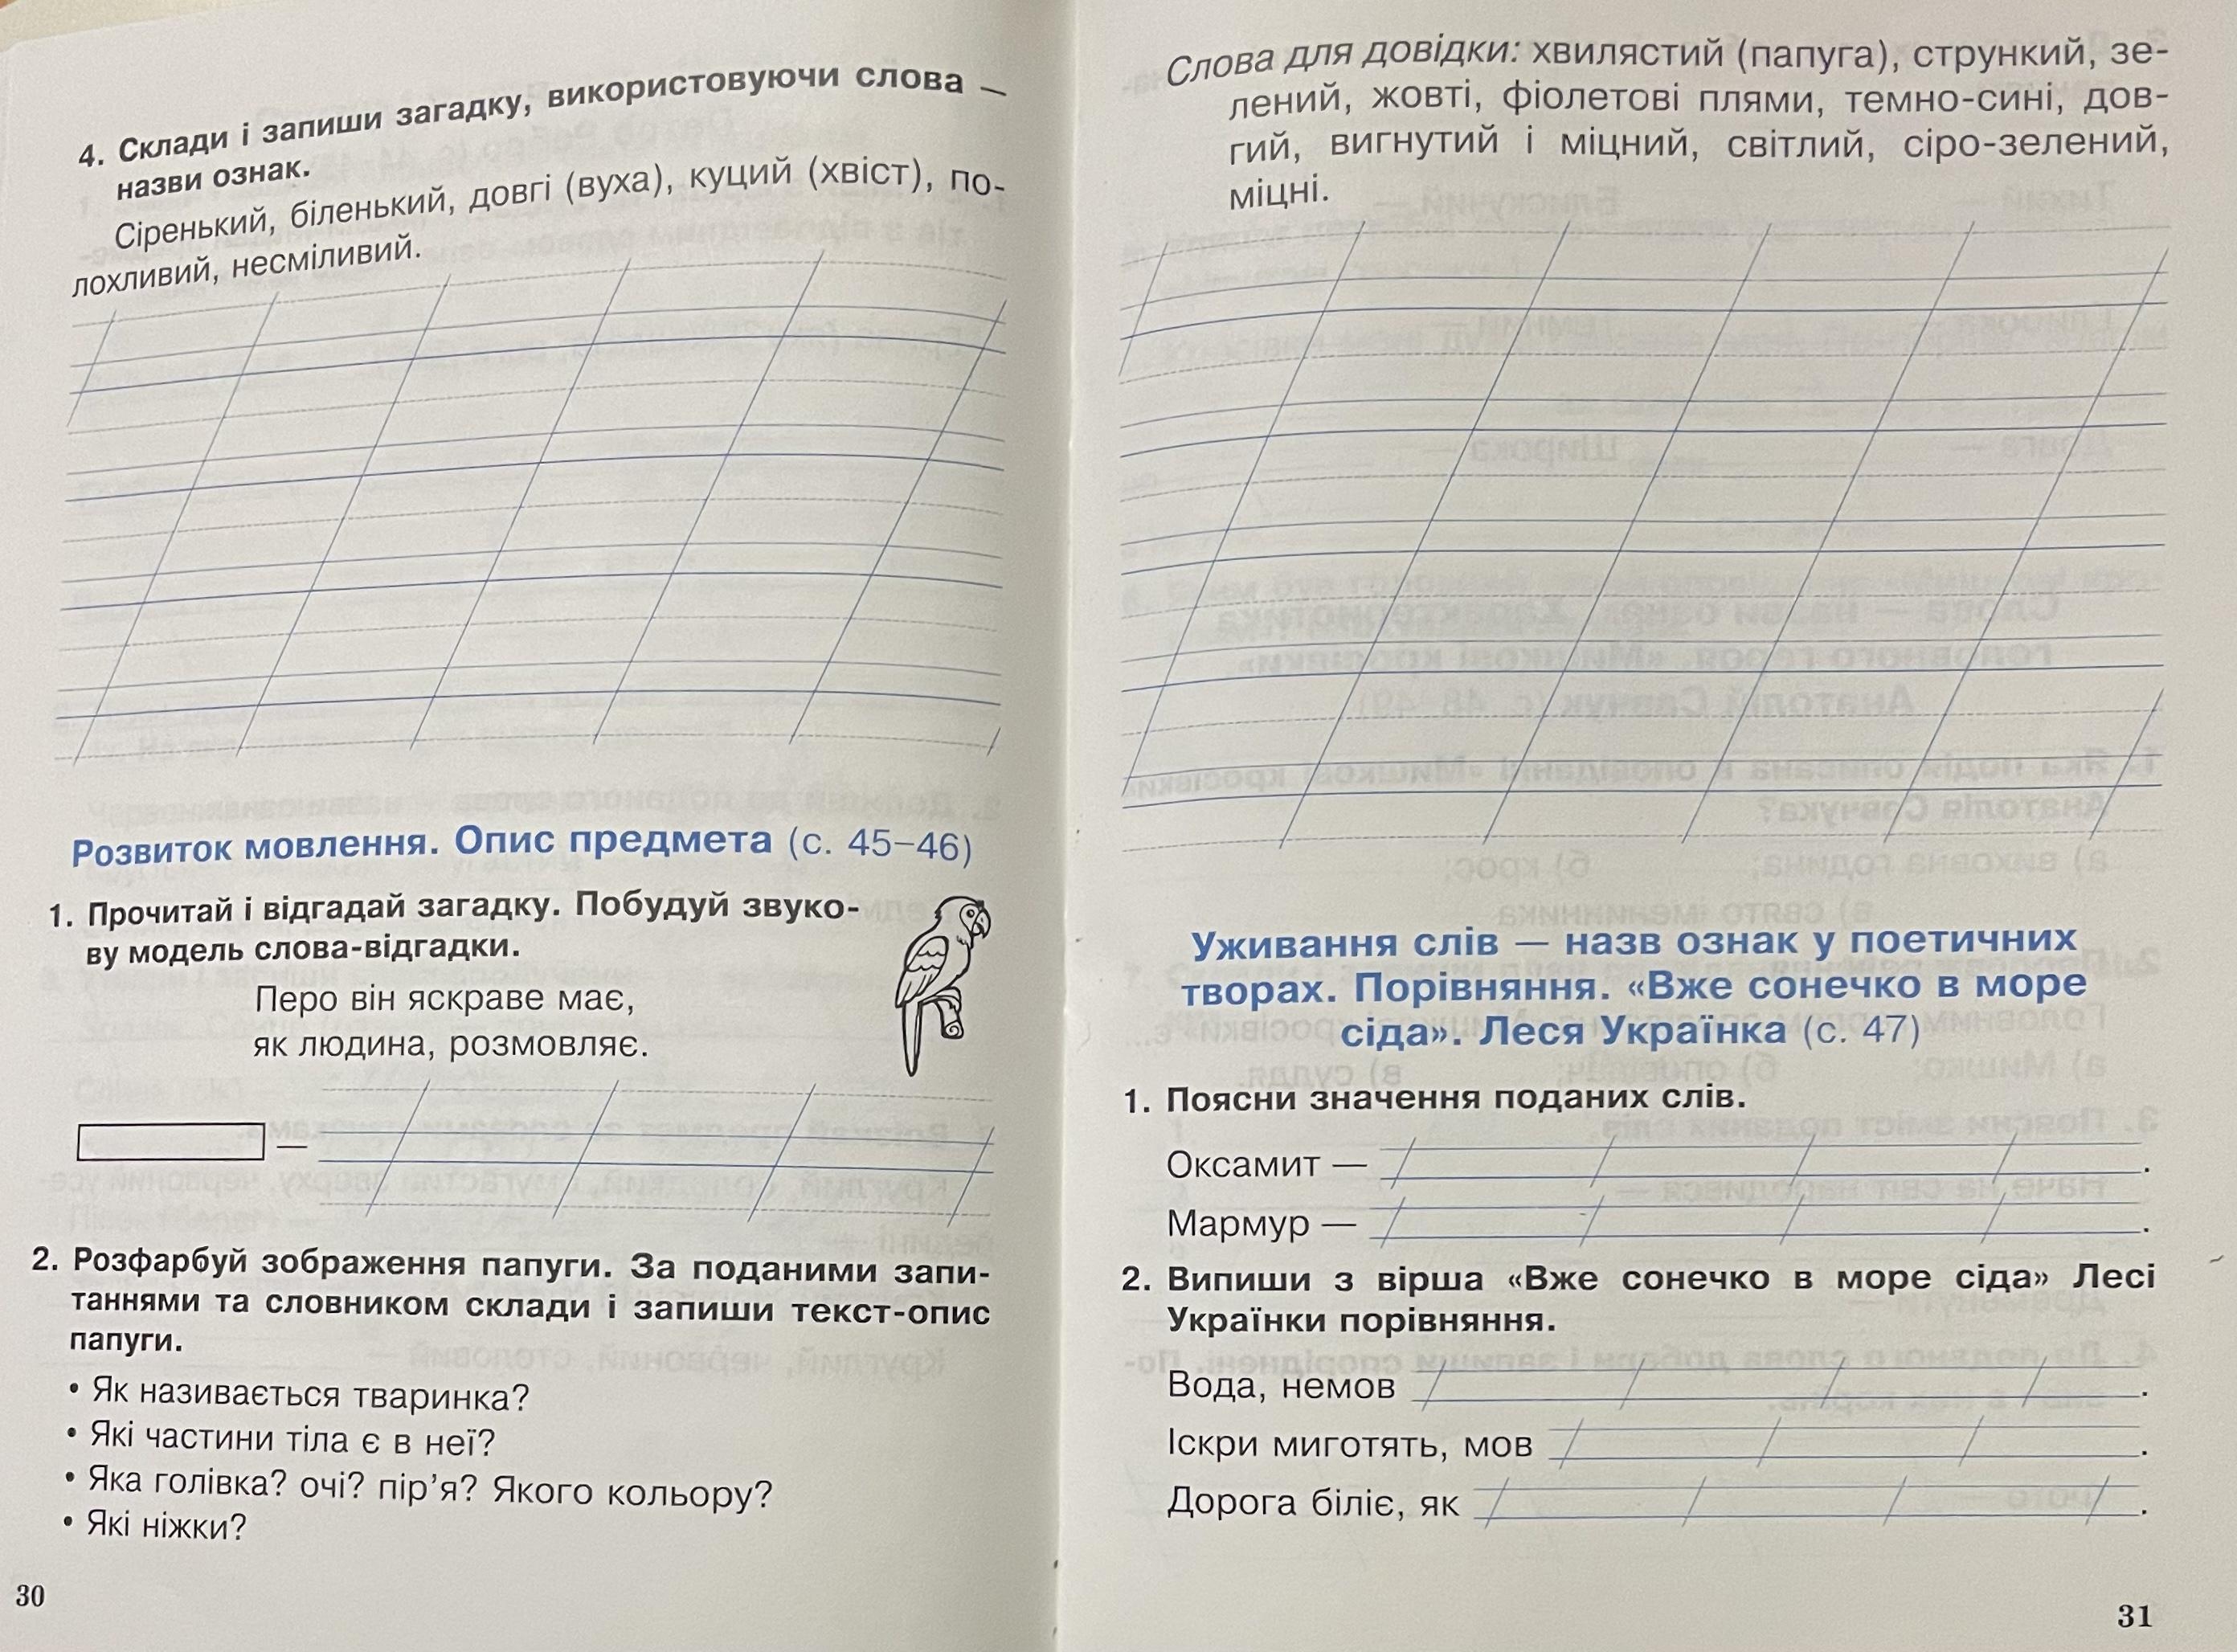 4. Склади і запиши загадку, використовуючи слова —
назви ознак.
Сіренький, біленький, довгі (вуха), куций (хвіст), по-
лохливий, несміливий.
Розвиток мовлення. Опис предмета (с. 45–46)
1. Прочитай і відгадай загадку. Побудуй звуко-
ву модель слова-відгадки.
Перо він яскраве має,
як людина, розмовляє.
—
2. Розфарбуй зображення папуги. За поданими запи-
таннями та словником склади і запиши текст-опис
папуги.
• Як називається тваринка?
• Які частини тіла є в неї?
• Яка голівка? очі? пір’я? Якого кольору?
• Які ніжки?
30
Слова для довідки: хвилястий (папуга), стрункий, зе-
лений, жовті, фіолетові плями, темно-сині, дов-
гий, вигнутий і міцний, світлий, сіро-зелений,
міцні.
Уживання слів — назв ознак у поетичних
творах. Порівняння. «Вже сонечко в море
сіда». Леся Українка (с. 47)
1. Поясни значення поданих слів.
Оксамит — .
Мармур — .
2. Випиши з вірша «Вже сонечко в море сіда» Лесі
Українки порівняння.
Вода, немов .
Іскри миготять, мов .
Дорога біліє, як .
31